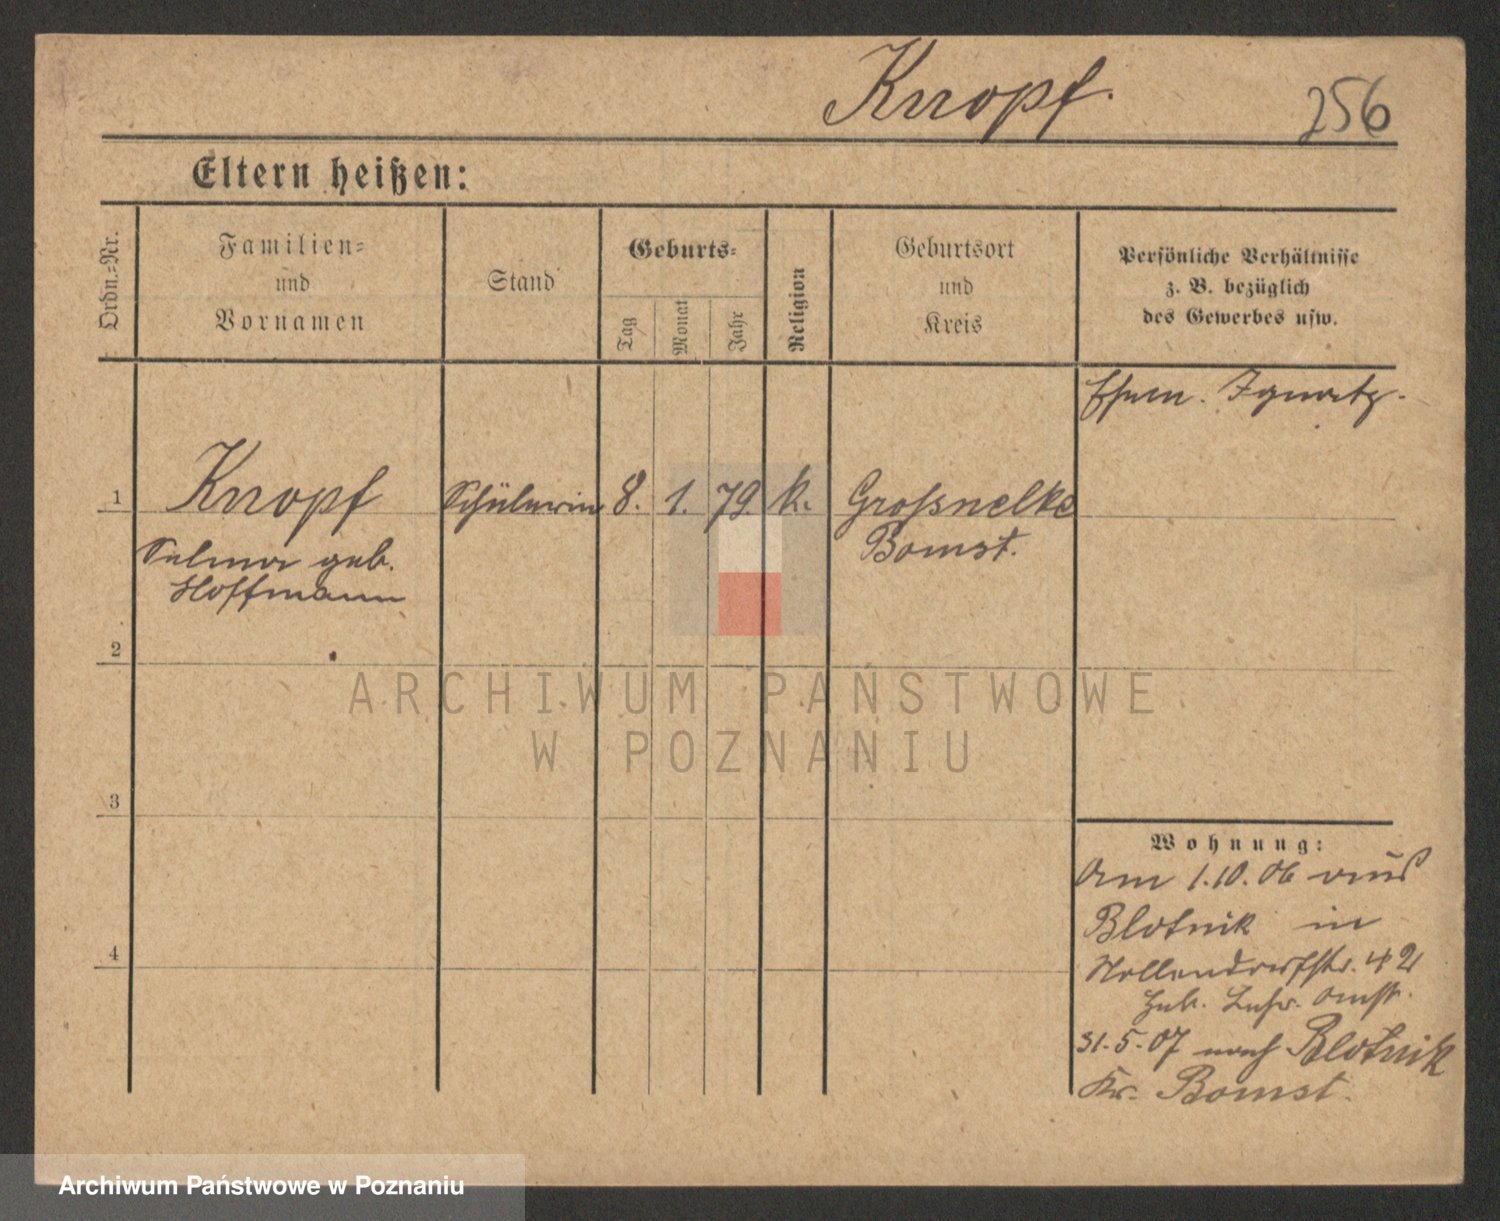 Knopf.
256
Eltern heißen:
Ordn.-Nr.
Familien-
und
Vornamen
Stand
Geburts-
Tag
Monat
Jahr
Religion
Geburtsort
und
Kreis
Persönliche Verhältnisse
z. B. bezüglich
des Gewerbes usw.
Ehem. Ignatz.
1
Knopf Schülerin 8. 1. 79 k. Großnelke
Bomst.
Selma geb.
Hoffmann
2
ARCHIWUM PAŃSTWOWE
W POZNANIU
3
4
Wohnung:
Am 1.10.06 aus
Blotnik in
Hollendorfstr. 42
Heb. Lehr. Anst.
31.5.07 nach Blotnik
Kr. Bomst.
Archiwum Państwowe w Poznaniu